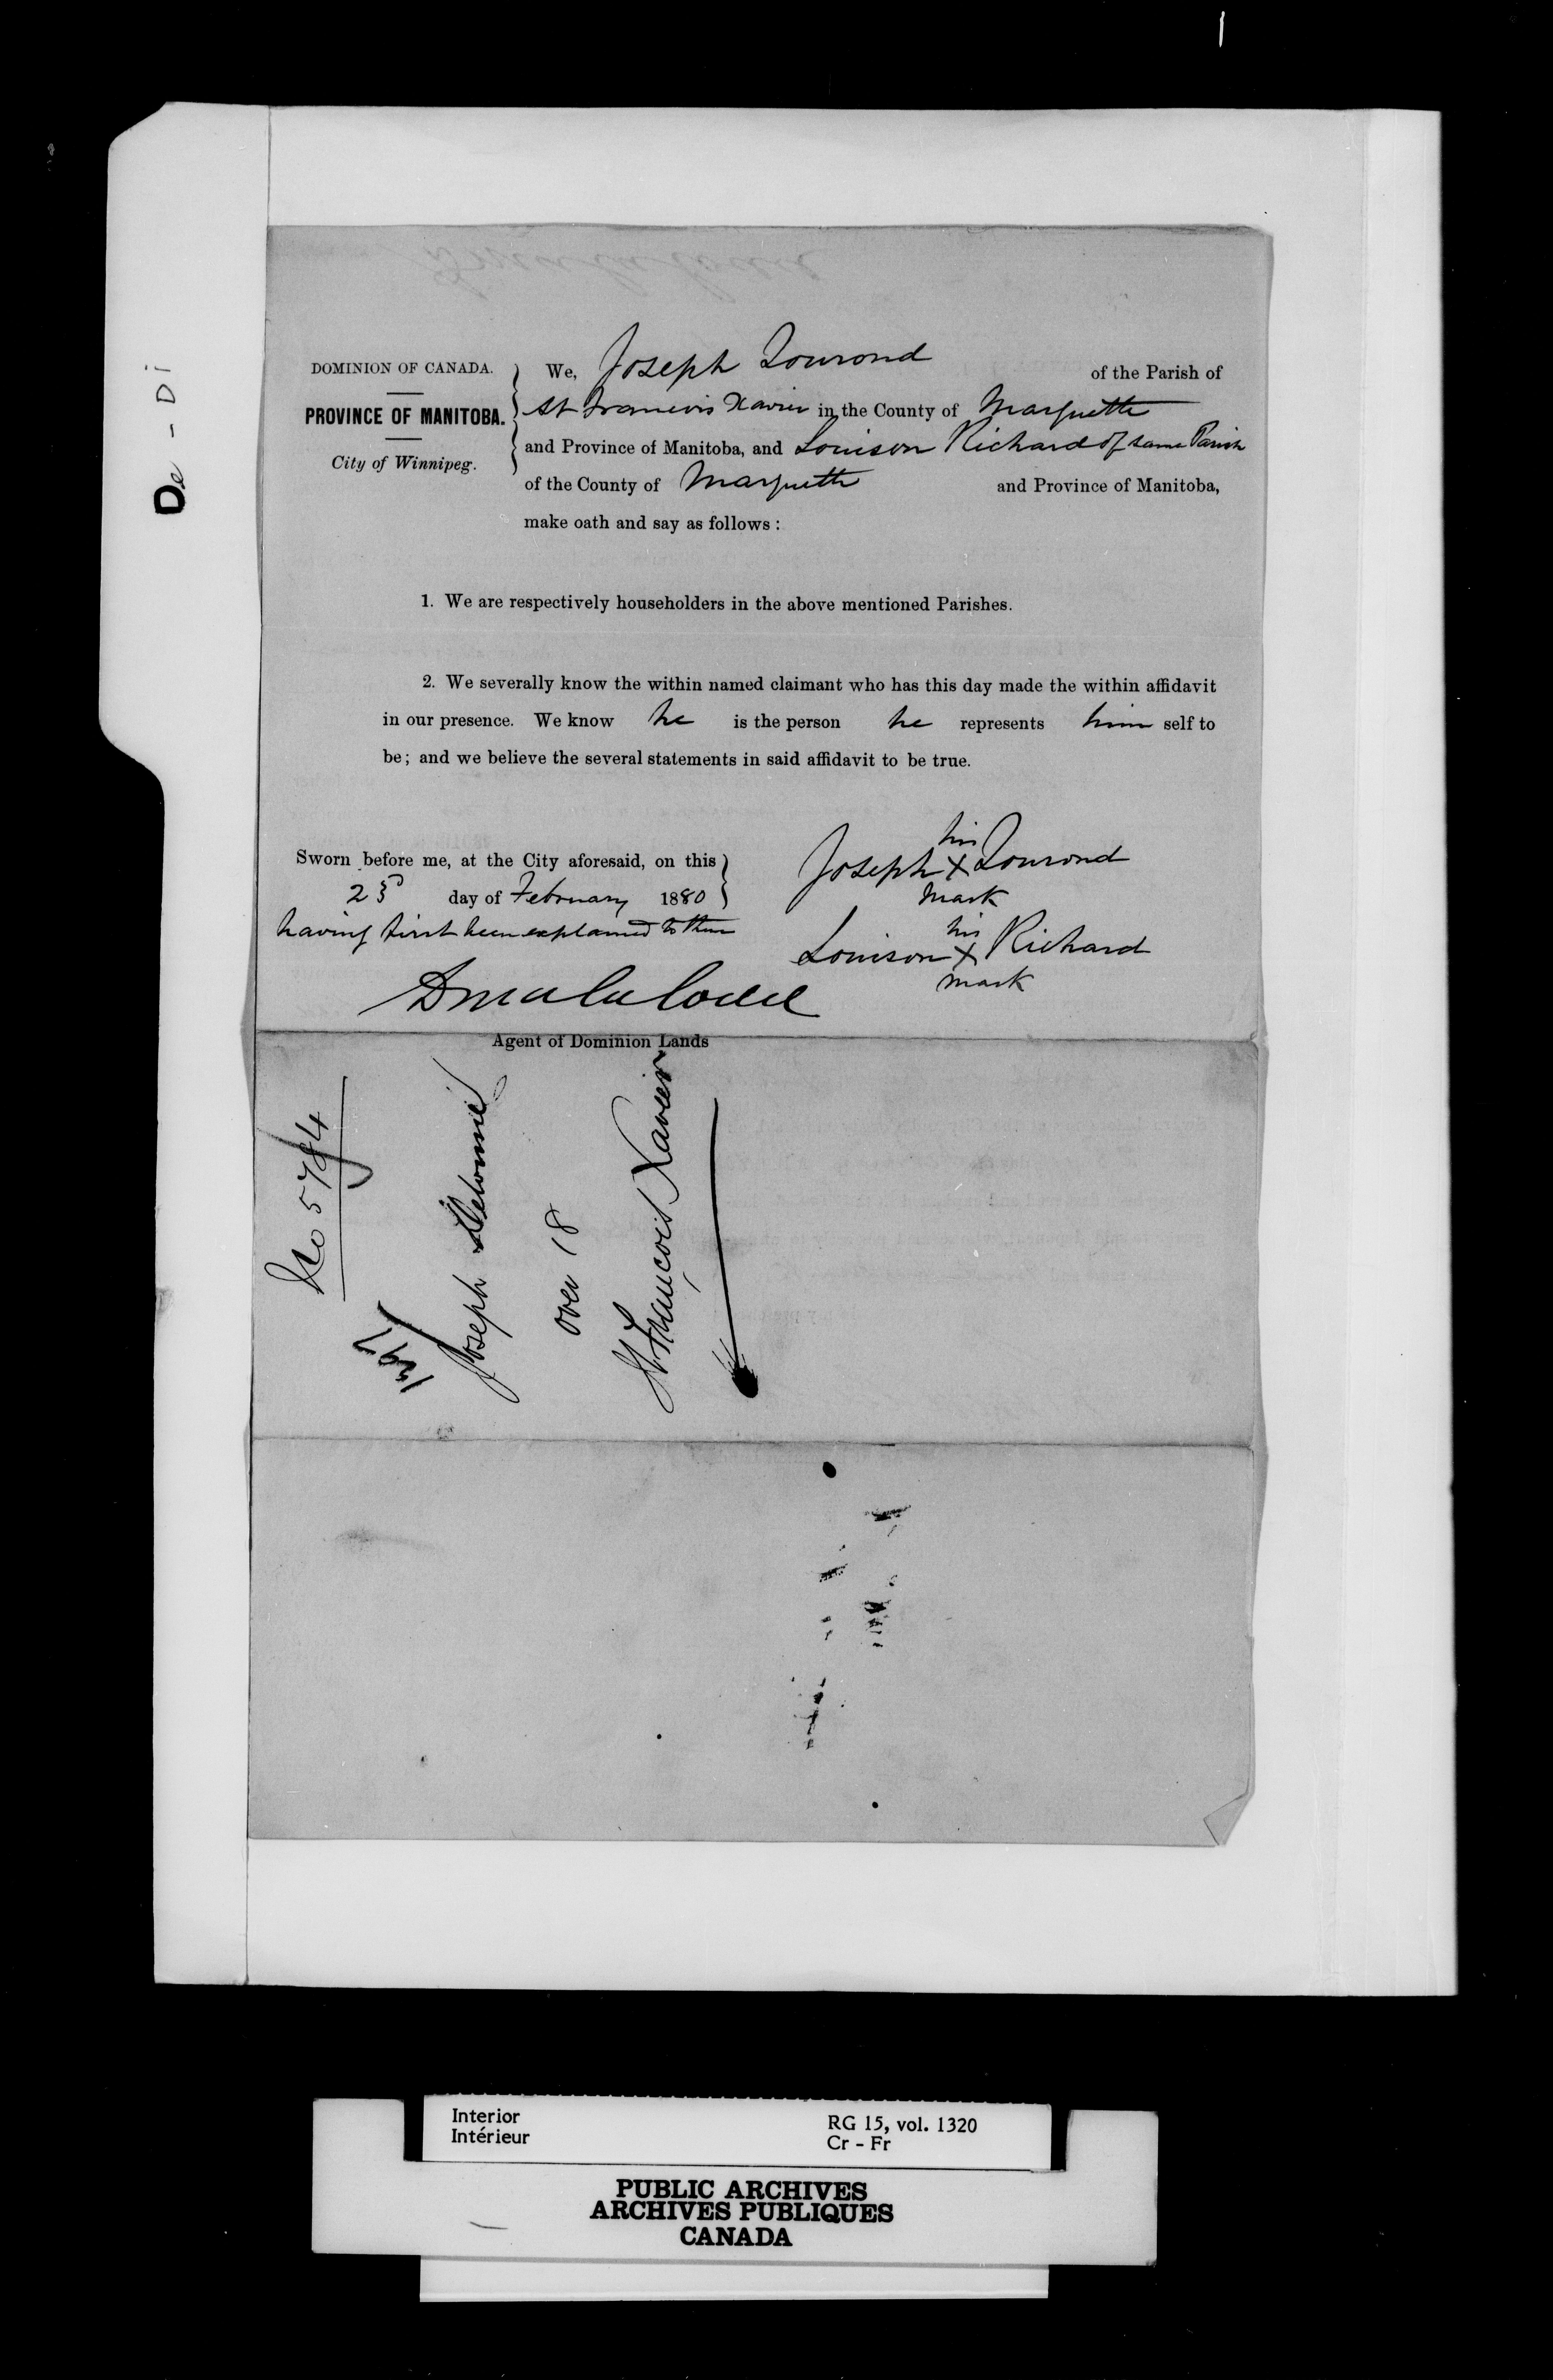 De - Di
DOMINION OF CANADA.
PROVINCE OF MANITOBA.
City of Winnipeg.
We, Joseph Tourond of the Parish of
St Francois Xavier in the County of Marquette
and Province of Manitoba, and Louison Richard of same Parish
of the County of Marquette and Province of Manitoba,
make oath and say as follows :
1. We are respectively householders in the above mentioned Parishes.
2. We severally know the within named claimant who has this day made the within affidavit
in our presence. We know he is the person he represents him self to
be; and we believe the several statements in said affidavit to be true.
Sworn before me, at the City aforesaid, on this
day of February 1880
having first been explained to them
Joseph his X mark Tourond
Louison his X mark Richard
Agent of Dominion Lands
No 5784
Joseph Delorme
over 18
St François Xavier
Interior
Intérieur
RG 15, vol. 1320
Cr - Fr
PUBLIC ARCHIVES
ARCHIVES PUBLIQUES
CANADA